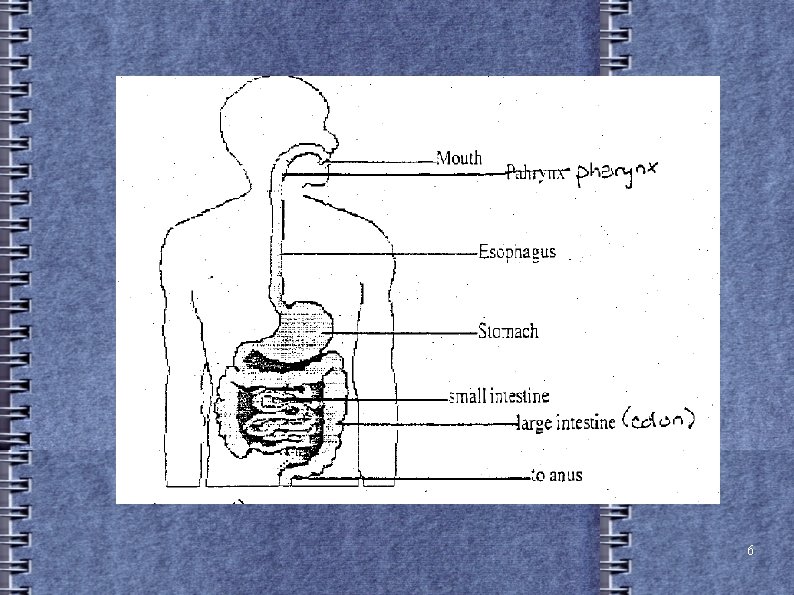 Mouth
Pahrynx pharynx
Esophagus
Stomach
small intestine
large intestine (colon)
to anus
6